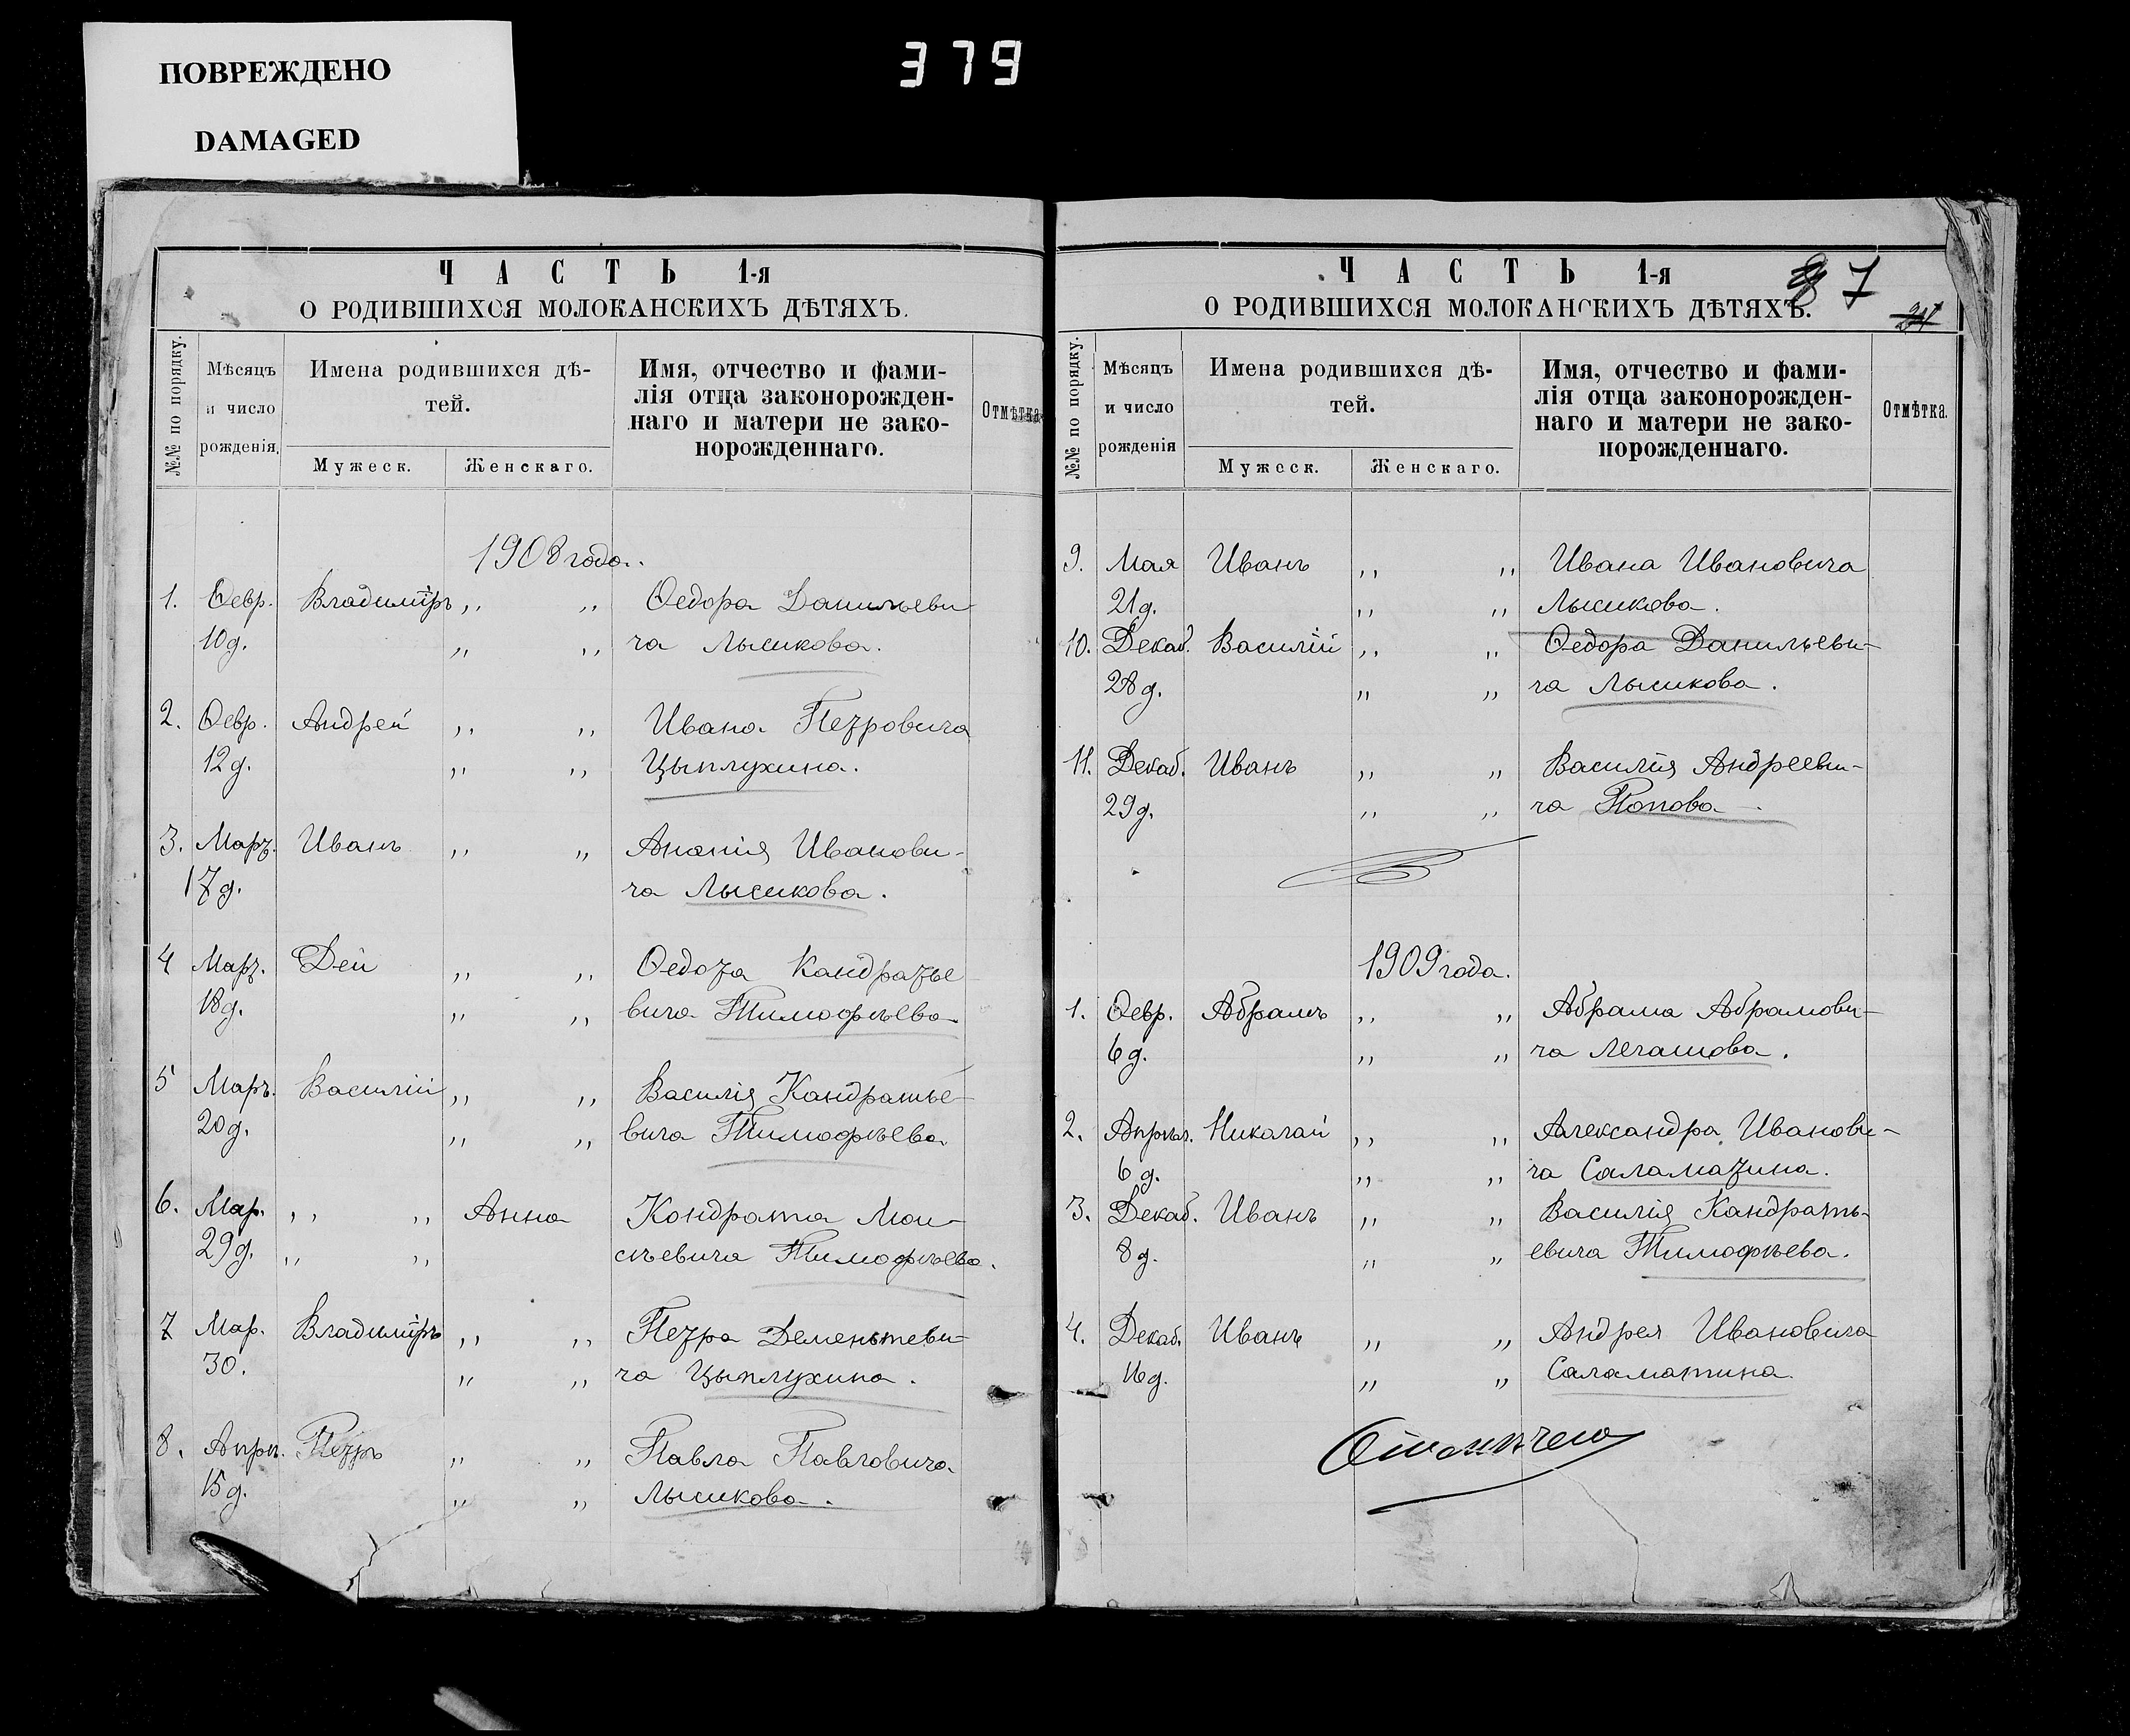 ПОВРЕЖДЕНО
DAMAGED
379
ЧАСТЬ 1-я
О РОДИВШИХСЯ МОЛОКАНСКИХЪ ДѢТЯХЪ.
№№ по порядку.
Мѣсяцъ и число рожденія.
Имена родившихся дѣ-
тей.
Мужеск.
Женскаго.
Имя, отчество и фами-
лія отца законорожден-
наго и матери не зако-
норожденнаго.
Отмѣтка
1908 года.
1. Ѳевр. Владиміръ ,, ,, Ѳедора Данильеви
10 д. ,, ,, ча Лысикова.
2. Ѳевр. Андрей ,, ,, Ивана Петровича
12 д. ,, ,, Цыплухина.
3. Март. Иванъ ,, ,, Ананія Иванови-
17 д. ча Лысикова.
4 Март. Дей ,, ,, Ѳедота Кандратье
18 д. ,, ,, вича Тимофѣева
5 Март. Василій ,, ,, Василія Кандратье-
20 д. ,, ,, вича Тимофѣева.
6. Мар. ,, ,, Анна Кондрата Мои-
29 д. ,, ,, сѣевича Тимофѣева.
7 Мар. Владиміръ ,, ,, Петра Деменьтеви-
30. ,, ,, ча Цыплухина.
8. Апрл. Петръ ,, ,, Павла Павловича
15 д. ,, ,, Лысикова.
ЧАСТЬ 1-я
87
О РОДИВШИХСЯ МОЛОКАНСКИХЪ ДѢТЯХЪ.
№№ по порядку.
Мѣсяцъ и число рожденія
Имена родившихся дѣ-
тей.
Мужеск.
Женскаго.
Имя, отчество и фами-
лія отца законорожден-
наго и матери не зако-
норожденнаго.
Отмѣтка.
9. Мая Иванъ ,, ,, Ивана Ивановича
21 д. ,, ,, Лысикова.
10. Декаб. Василій ,, ,, Ѳедора Данильеви-
28 д. ,, ,, ча Лысикова.
11. Декаб. Иванъ ,, ,, Василія Андрееви-
29 д. ,, ,, ча Попова.
1909 года.
1. Ѳевр. Абрамъ ,, ,, Абрама Абрамови-
6 д. ,, ,, ча Лечашова.
2. Апрѣл. Никалай ,, ,, Александра Иванови-
6 д. ,, ,, ча Саламатина.
3. Декаб. Иванъ ,, ,, Василія Кандрать-
8 д. ,, ,, евича Тимофѣева.
4. Декаб. Иванъ ,, ,, Андрея Ивановича
16 д. ,, ,, Саламатина.